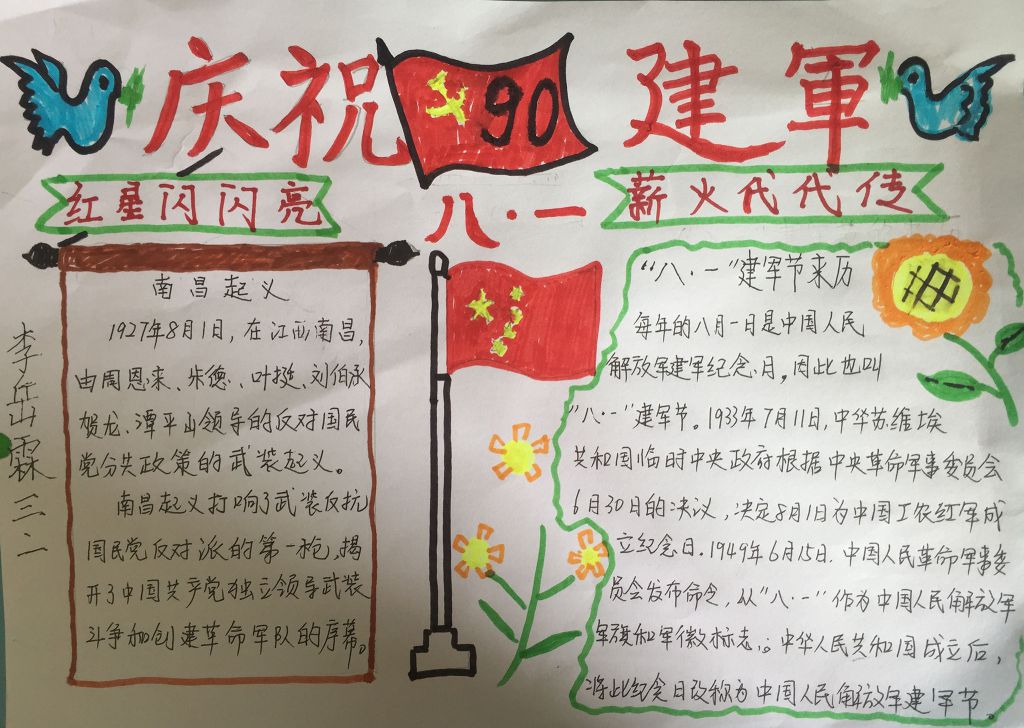 庆祝 90 建軍
红星闪闪亮
八·一
薪火代代传
南昌起义
1927年8月1日,在江西南昌,
由周恩来、朱德、叶挺、刘伯承
贺龙、潭平山领导的反对国民
党分共政策的武装起义。
南昌起义打响了武装反抗
国民党反对派的第一枪,揭
开了中国共产党独立领导武装
斗争和创建革命军队的序幕。
李岳霖三二
“八·一”建军节来历
每年的八月一日是中国人民
解放军建军纪念日,因此也叫
“八·一”建军节。1933年7月11日,中华苏维埃
共和国临时中央政府根据中央革命军事委员会
6月30日的决议,决定8月1日为中国工农红军成
立纪念日.1949年6月15日.中国人民革命军事委
员会发布命令,从“八·一”作为中国人民解放军
军旗和军徽标志。中华人民共和国成立后,
将此纪念日改称为中国人民解放军建军节。